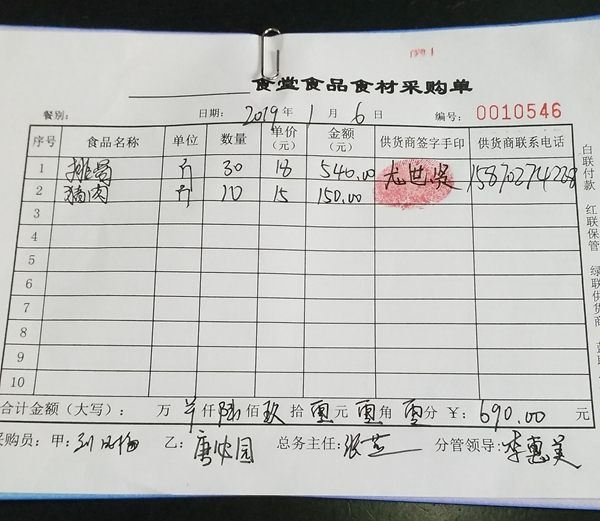 食堂食品食材采购单
餐别： 日期：2019年1月6日 编号：0010546
序号 食品名称 单位 数量 单价（元） 金额（元） 供货商签字手印 供货商联系电话
1 排骨 斤 30 18 540.00 尤世贤 15870274228
2 猪肉 斤 10 15 150.00
3
4
5
6
7
8
9
10
合计金额（大写）： 万 仟陆佰玖拾零元零角零分 ¥：690.00 元
采购员：甲： 乙：唐 园 总务主任：张 分管领导：李惠美
白联付款 红联保管 绿联供货商